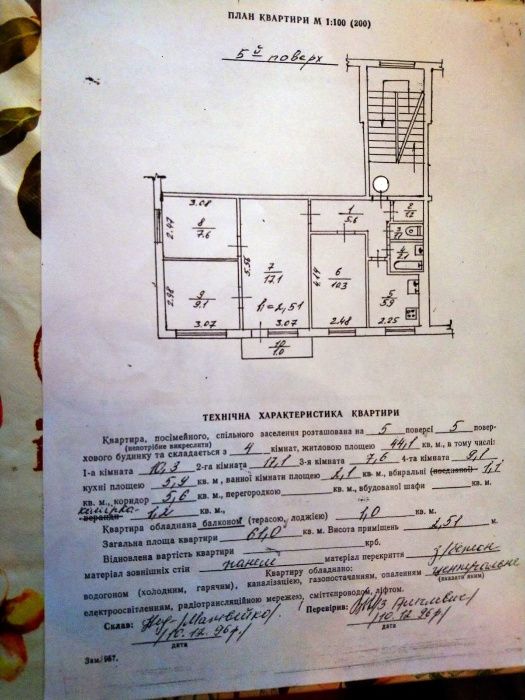 ПЛАН КВАРТИРИ М 1:100 (200)
5й поверх
3.08
2.47
8
7.6
2.98
9
9.1
3.07
5.56
7
17.1
h=2,51
3.07
10
1.0
1
5.6
2
1.2
3
1.1
4
2.1
4.14
6
10.3
2.48
5
5.9
2.25
ТЕХНІЧНА ХАРАКТЕРИСТИКА КВАРТИРИ
Квартира, посімейного, спільного заселення розташована на 5 поверсі 5 повер-
(непотрібне викреслити)
хового будинку та складається з 4 кімнат, житловою площею 44,1 кв. м., в тому числі:
1-а кімната 10,3 2-га кімната 17,1 3-я кімната 7,6 4-та кімната 9,1
кухні площею 5,9 кв. м, ванної кімнати площею 2,1 кв. м, вбиральні (поєднаної) 1,1
кв. м., коридор 5,6 кв. м., перегородкою кв. м., вбудованої шафи кв. м.
комірка
веранди 1,2 кв. м.,
Квартира обладнана балконом (терасою, лоджією) 1,0 кв. м.
Загальна площа квартири 61,0 кв. м. Висота приміщень 2,51 м.
Відновлена вартість квартири крб.
матеріал зовнішніх стін панелі матеріал перекриття з/бетон
Квартиру обладнано:
водогоном (холодним, гарячим), каналізацією, газопостачанням, опаленням центральне
(вказати яким)
електроосвітленням, радіотрансляційною мережею, сміттєпроводом, ліфтом.
Склав: Перевірив:
/10.12.96р/ /10.12.96р/
дата дата
Зам. 967.